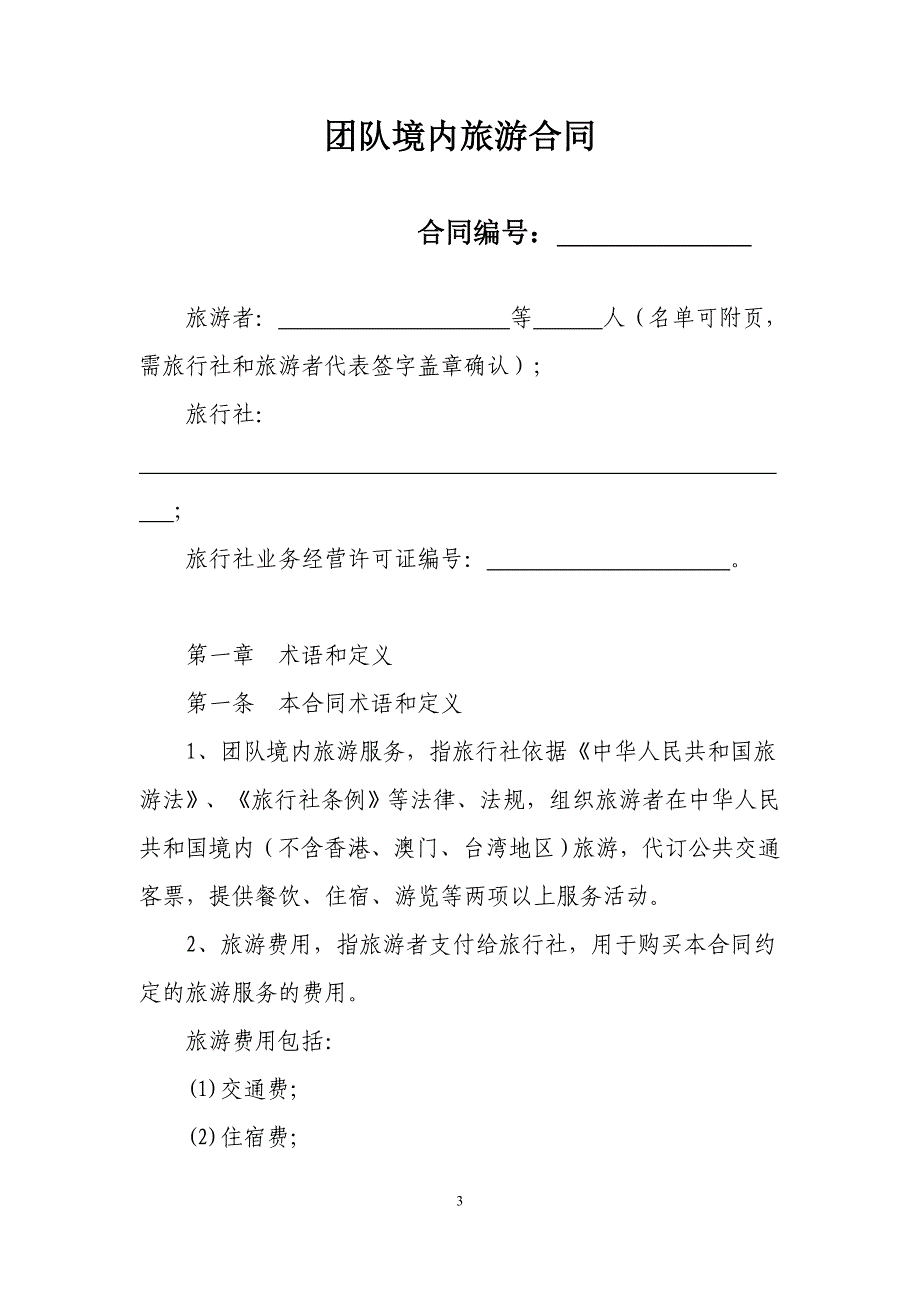 团队境内旅游合同
合同编号：______________
旅游者：____________________等______人（名单可附页，
需旅行社和旅游者代表签字盖章确认）；
旅行社：
_______________________________________________________
___；
旅行社业务经营许可证编号：_____________________。
第一章　术语和定义
第一条　本合同术语和定义
1、团队境内旅游服务，指旅行社依据《中华人民共和国旅
游法》、《旅行社条例》等法律、法规，组织旅游者在中华人民
共和国境内（不含香港、澳门、台湾地区）旅游，代订公共交通
客票，提供餐饮、住宿、游览等两项以上服务活动。
2、旅游费用，指旅游者支付给旅行社，用于购买本合同约
定的旅游服务的费用。
旅游费用包括：
(1)交通费；
(2)住宿费；
3